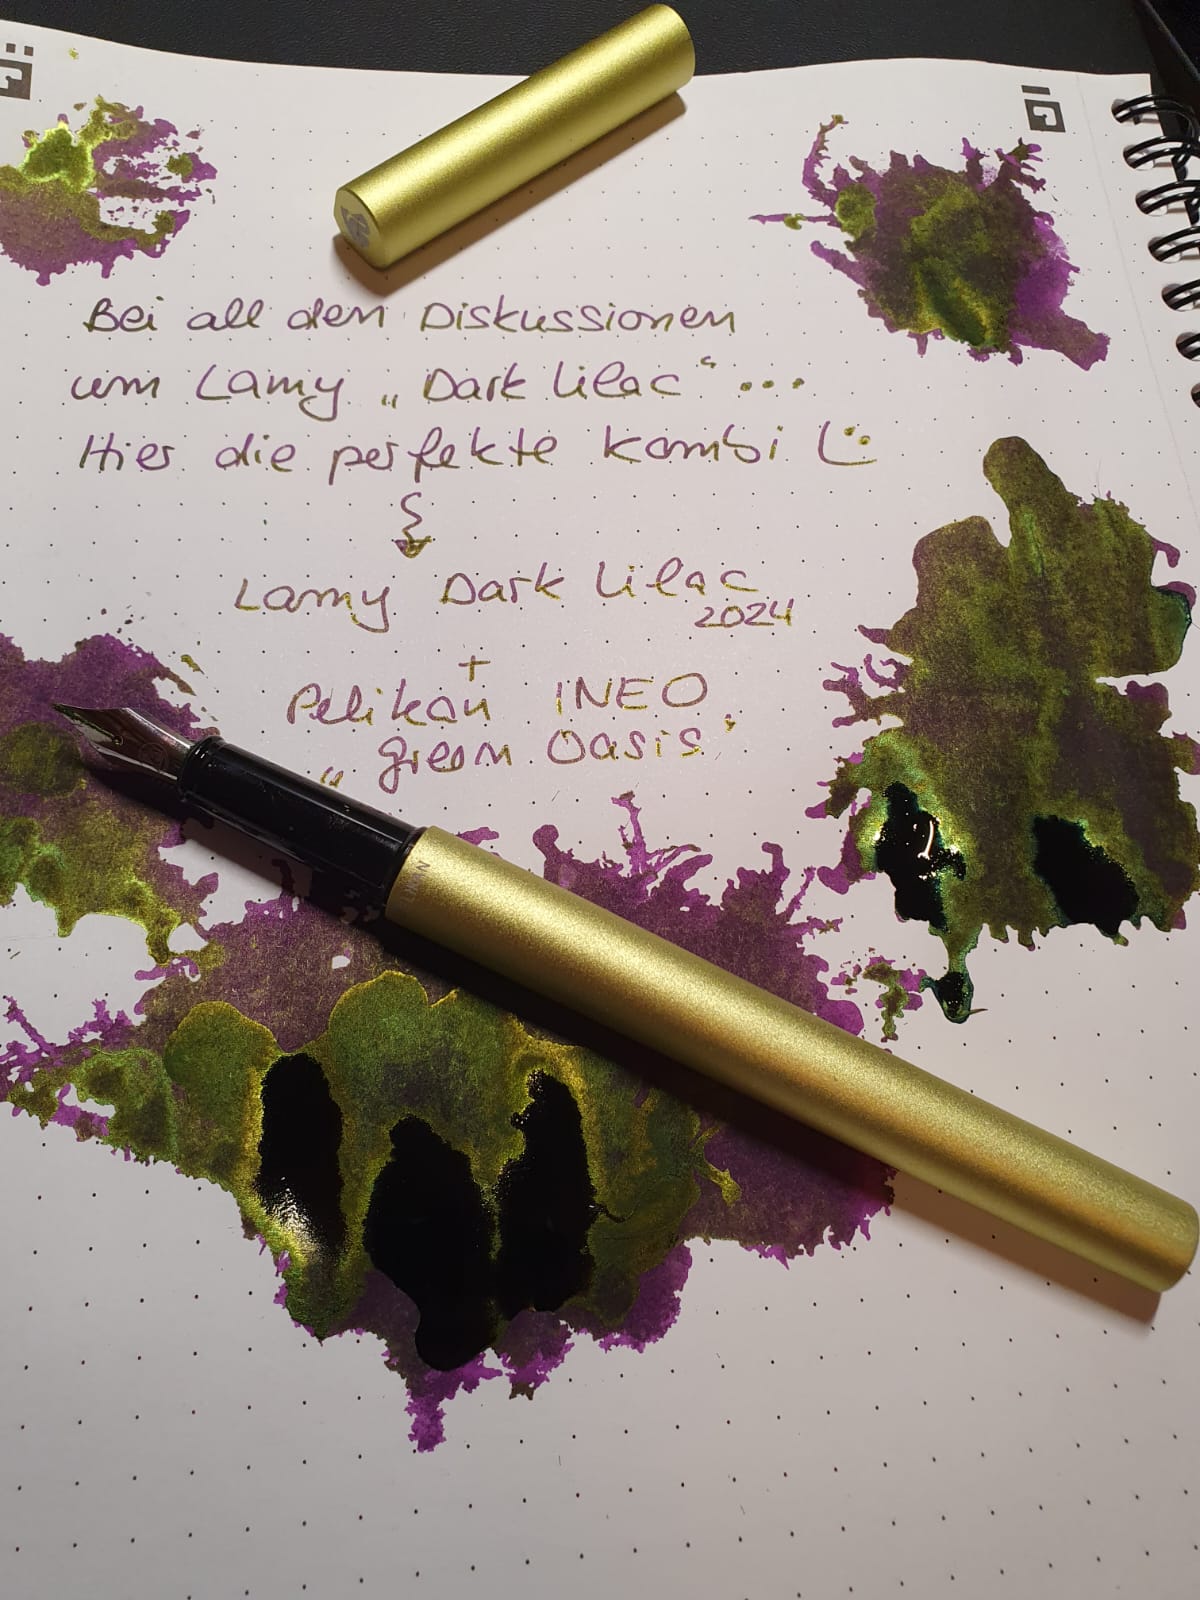 Bei all den Diskussionen
um Lamy „Dark Lilac“ ...
Hier die perfekte Kombi (:
Lamy Dark Lilac
2024
+
Pelikan INEO
„green Oasis“